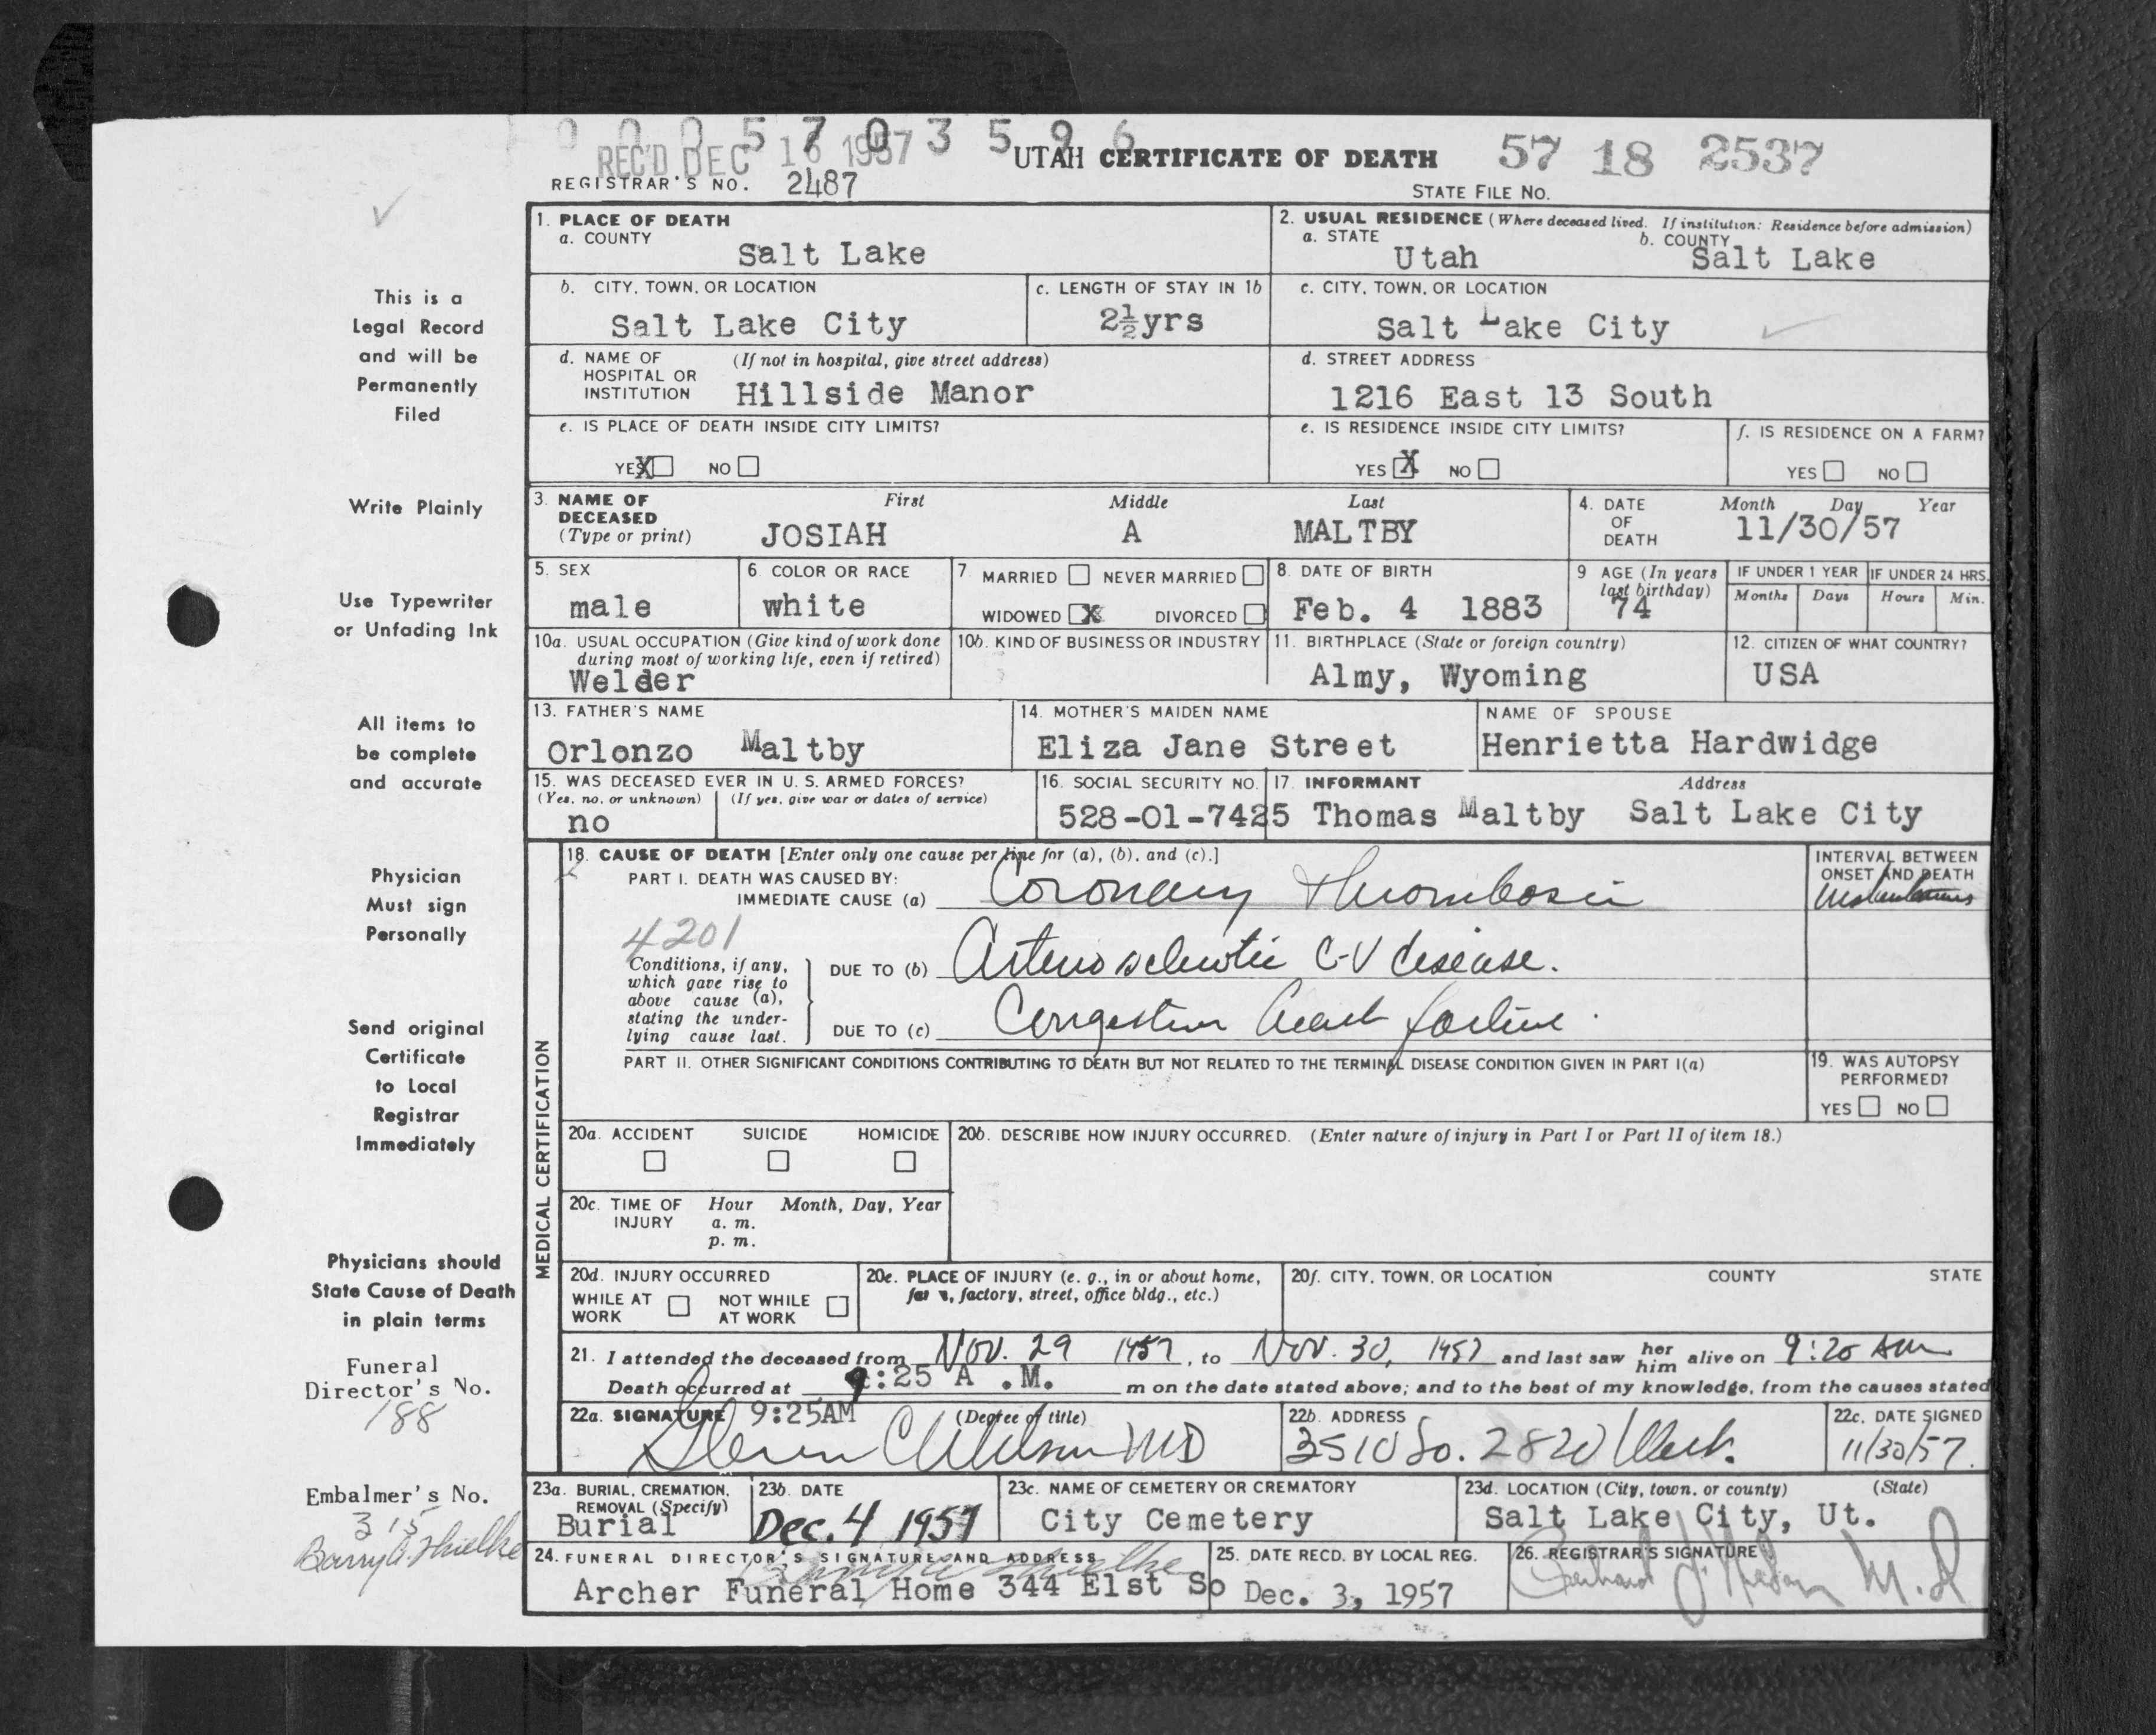 0 0 0 5 7 0 3 5 9 6
REC'D DEC 16 1957
UTAH CERTIFICATE OF DEATH 57 18 2537
REGISTRAR'S NO. 2487 STATE FILE NO.
This is a
Legal Record
and will be
Permanently
Filed
Write Plainly
Use Typewriter
or Unfading Ink
All items to
be complete
and accurate
Physician
Must sign
Personally
Send original
Certificate
to Local
Registrar
Immediately
Physicians should
State Cause of Death
in plain terms
Funeral
Director's No.
188
Embalmer's No.
315
Barry A. Thielke
1. PLACE OF DEATH
a. COUNTY
Salt Lake
2. USUAL RESIDENCE (Where deceased lived. If institution: Residence before admission)
a. STATE b. COUNTY
Utah Salt Lake
b. CITY, TOWN, OR LOCATION
Salt Lake City
c. LENGTH OF STAY IN 1b
2½yrs
c. CITY, TOWN, OR LOCATION
Salt Lake City
d. NAME OF (If not in hospital, give street address)
HOSPITAL OR
INSTITUTION Hillside Manor
d. STREET ADDRESS
1216 East 13 South
e. IS PLACE OF DEATH INSIDE CITY LIMITS?
YES X NO
e. IS RESIDENCE INSIDE CITY LIMITS?
YES X NO
f. IS RESIDENCE ON A FARM?
YES NO
3. NAME OF First Middle Last
DECEASED
(Type or print) JOSIAH A MALTBY
4. DATE Month Day Year
OF
DEATH 11/30/57
5. SEX
male
6 COLOR OR RACE
white
7 MARRIED NEVER MARRIED
WIDOWED X DIVORCED
8. DATE OF BIRTH
Feb. 4 1883
9 AGE (In years
last birthday)
74
IF UNDER 1 YEAR IF UNDER 24 HRS.
Months Days Hours Min.
10a. USUAL OCCUPATION (Give kind of work done
during most of working life, even if retired)
Welder
10b. KIND OF BUSINESS OR INDUSTRY
11. BIRTHPLACE (State or foreign country)
Almy, Wyoming
12. CITIZEN OF WHAT COUNTRY?
USA
13. FATHER'S NAME
Orlonzo Maltby
14. MOTHER'S MAIDEN NAME
Eliza Jane Street
NAME OF SPOUSE
Henrietta Hardwidge
15. WAS DECEASED EVER IN U. S. ARMED FORCES?
(Yes, no, or unknown) (If yes, give war or dates of service)
no
16. SOCIAL SECURITY NO.
528-01-7425
17. INFORMANT Address
Thomas Maltby Salt Lake City
MEDICAL CERTIFICATION
18. CAUSE OF DEATH [Enter only one cause per line for (a), (b), and (c).]
PART I. DEATH WAS CAUSED BY:
IMMEDIATE CAUSE (a) Coronary Thrombosis
INTERVAL BETWEEN
ONSET AND DEATH
Instantaneous
4201
Conditions, if any,
which gave rise to
above cause (a),
stating the under-
lying cause last.
DUE TO (b) Arteriosclerotic C-V disease.
DUE TO (c) Congestive heart failure.
PART II. OTHER SIGNIFICANT CONDITIONS CONTRIBUTING TO DEATH BUT NOT RELATED TO THE TERMINAL DISEASE CONDITION GIVEN IN PART I(a)
19. WAS AUTOPSY
PERFORMED?
YES NO
20a. ACCIDENT SUICIDE HOMICIDE
20b. DESCRIBE HOW INJURY OCCURRED. (Enter nature of injury in Part I or Part II of item 18.)
20c. TIME OF Hour Month, Day, Year
INJURY a. m.
p. m.
20d. INJURY OCCURRED
WHILE AT NOT WHILE
WORK AT WORK
20e. PLACE OF INJURY (e. g., in or about home,
farm, factory, street, office bldg., etc.)
20f. CITY, TOWN, OR LOCATION COUNTY STATE
21. I attended the deceased from Nov. 29 1957, to Nov. 30, 1957 and last saw her him alive on 9:20 AM
Death occurred at 9:25 A .M. m on the date stated above; and to the best of my knowledge, from the causes stated
22a. SIGNATURE 9:25AM (Degree of title)
MD
22b. ADDRESS
3510 So. 2820 West.
22c. DATE SIGNED
11/30/57.
23a. BURIAL, CREMATION,
REMOVAL (Specify)
Burial
23b. DATE
Dec. 4 1957
23c. NAME OF CEMETERY OR CREMATORY
City Cemetery
23d. LOCATION (City, town, or county) (State)
Salt Lake City, Ut.
24. FUNERAL DIRECTOR'S SIGNATURE AND ADDRESS
Archer Funeral Home 344 E1st So
25. DATE RECD. BY LOCAL REG.
Dec. 3, 1957
26. REGISTRAR'S SIGNATURE
M.D